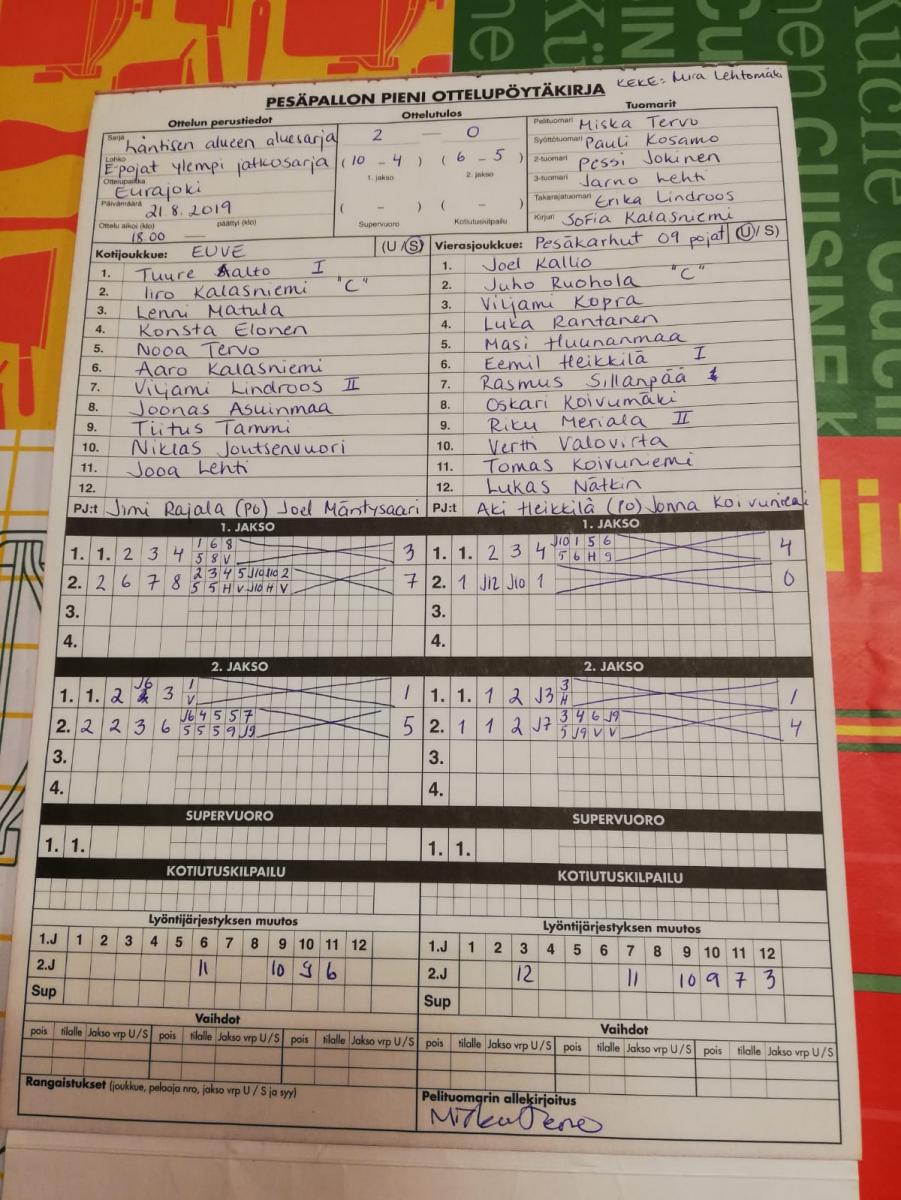 Küche
Cucina
PESÄPALLON PIENI OTTELUPÖYTÄKIRJA KEKE: Mira Lehtomäki
Ottelun perustiedot
Sarja häntisen alueen aluesarja
Lohko E-pojat ylempi jatkosarja
Ottelupaikka Eurajoki
Päivämäärä 21.8.2019
Ottelu alkoi (klo) päättyi (klo)
18.00 —
Ottelutulos
2 — 0
( 10 - 4 ) ( 6 - 5 )
1. jakso 2. jakso
( - ) ( - )
Supervuoro Kotiutuskilpailu
Tuomarit
Pelituomari Miska Tervo
Syöttötuomari Pauli Kosamo
2-tuomari Pessi Jokinen
3-tuomari Jarno Lehti
Takarajatuomari Erika Lindroos
Kirjuri Sofia Kalasniemi
Kotijoukkue: EUVE (U/S)
1. Tuure Aalto I
2. Iiro Kalasniemi "C"
3. Lenni Matula
4. Konsta Elonen
5. Nooa Tervo
6. Aaro Kalasniemi
7. Viljami Lindroos II
8. Joonas Asuinmaa
9. Tiitus Tammi
10. Niklas Joutsenvuori
11. Jooa Lehti
12.
PJ:t Jimi Rajala (PO) Joel Mäntysaari
Vierasjoukkue: Pesäkarhut 09 pojat (U/S)
1. Joel Kallio
2. Juho Ruohola "C"
3. Viljami Kopra
4. Luka Rantanen
5. Masi Huunanmaa
6. Eemil Heikkilä I
7. Rasmus Sillanpää
8. Oskari Koivumäki
9. Riku Meriala II
10. Vertti Valovirta
11. Tomas Koivuniemi
12. Lukas Nätkin
PJ:t Aki Heikkilä (PO) Jonna Koivuniemi
1. JAKSO
1. 1. 2 3 4 1 6 8 3
5 8 V
2. 2 6 7 8 2 3 4 5 J10 J10 2 7
5 5 H V J10 H V
3.
4.
1. JAKSO
1. 1. 2 3 4 J10 1 5 6 4
5 6 H 9
2. 1 J12 J10 1 0
3.
4.
2. JAKSO
1. 1. 2 J6 3 1 1
V
2. 2 2 3 6 J6 4 5 5 7 5
5 5 5 9 J9
3.
4.
2. JAKSO
1. 1. 1 2 J3 3 1
H
2. 1 1 2 J7 3 4 6 J9 4
5 J9 V V
3.
4.
SUPERVUORO
1. 1.
SUPERVUORO
1. 1.
KOTIUTUSKILPAILU
KOTIUTUSKILPAILU
Lyöntijärjestyksen muutos
1.J 1 2 3 4 5 6 7 8 9 10 11 12
2.J 11 10 9 6
Sup
Lyöntijärjestyksen muutos
1.J 1 2 3 4 5 6 7 8 9 10 11 12
2.J 12 11 10 9 7 3
Sup
Vaihdot
pois tilalle Jakso vrp U/S pois tilalle Jakso vrp U/S pois tilalle Jakso vrp U/S
Vaihdot
pois tilalle Jakso vrp U/S pois tilalle Jakso vrp U/S pois tilalle Jakso vrp U/S
Rangaistukset (joukkue, pelaaja nro, jakso vrp U / S ja syy)
Pelituomarin allekirjoitus
Miska Tervo